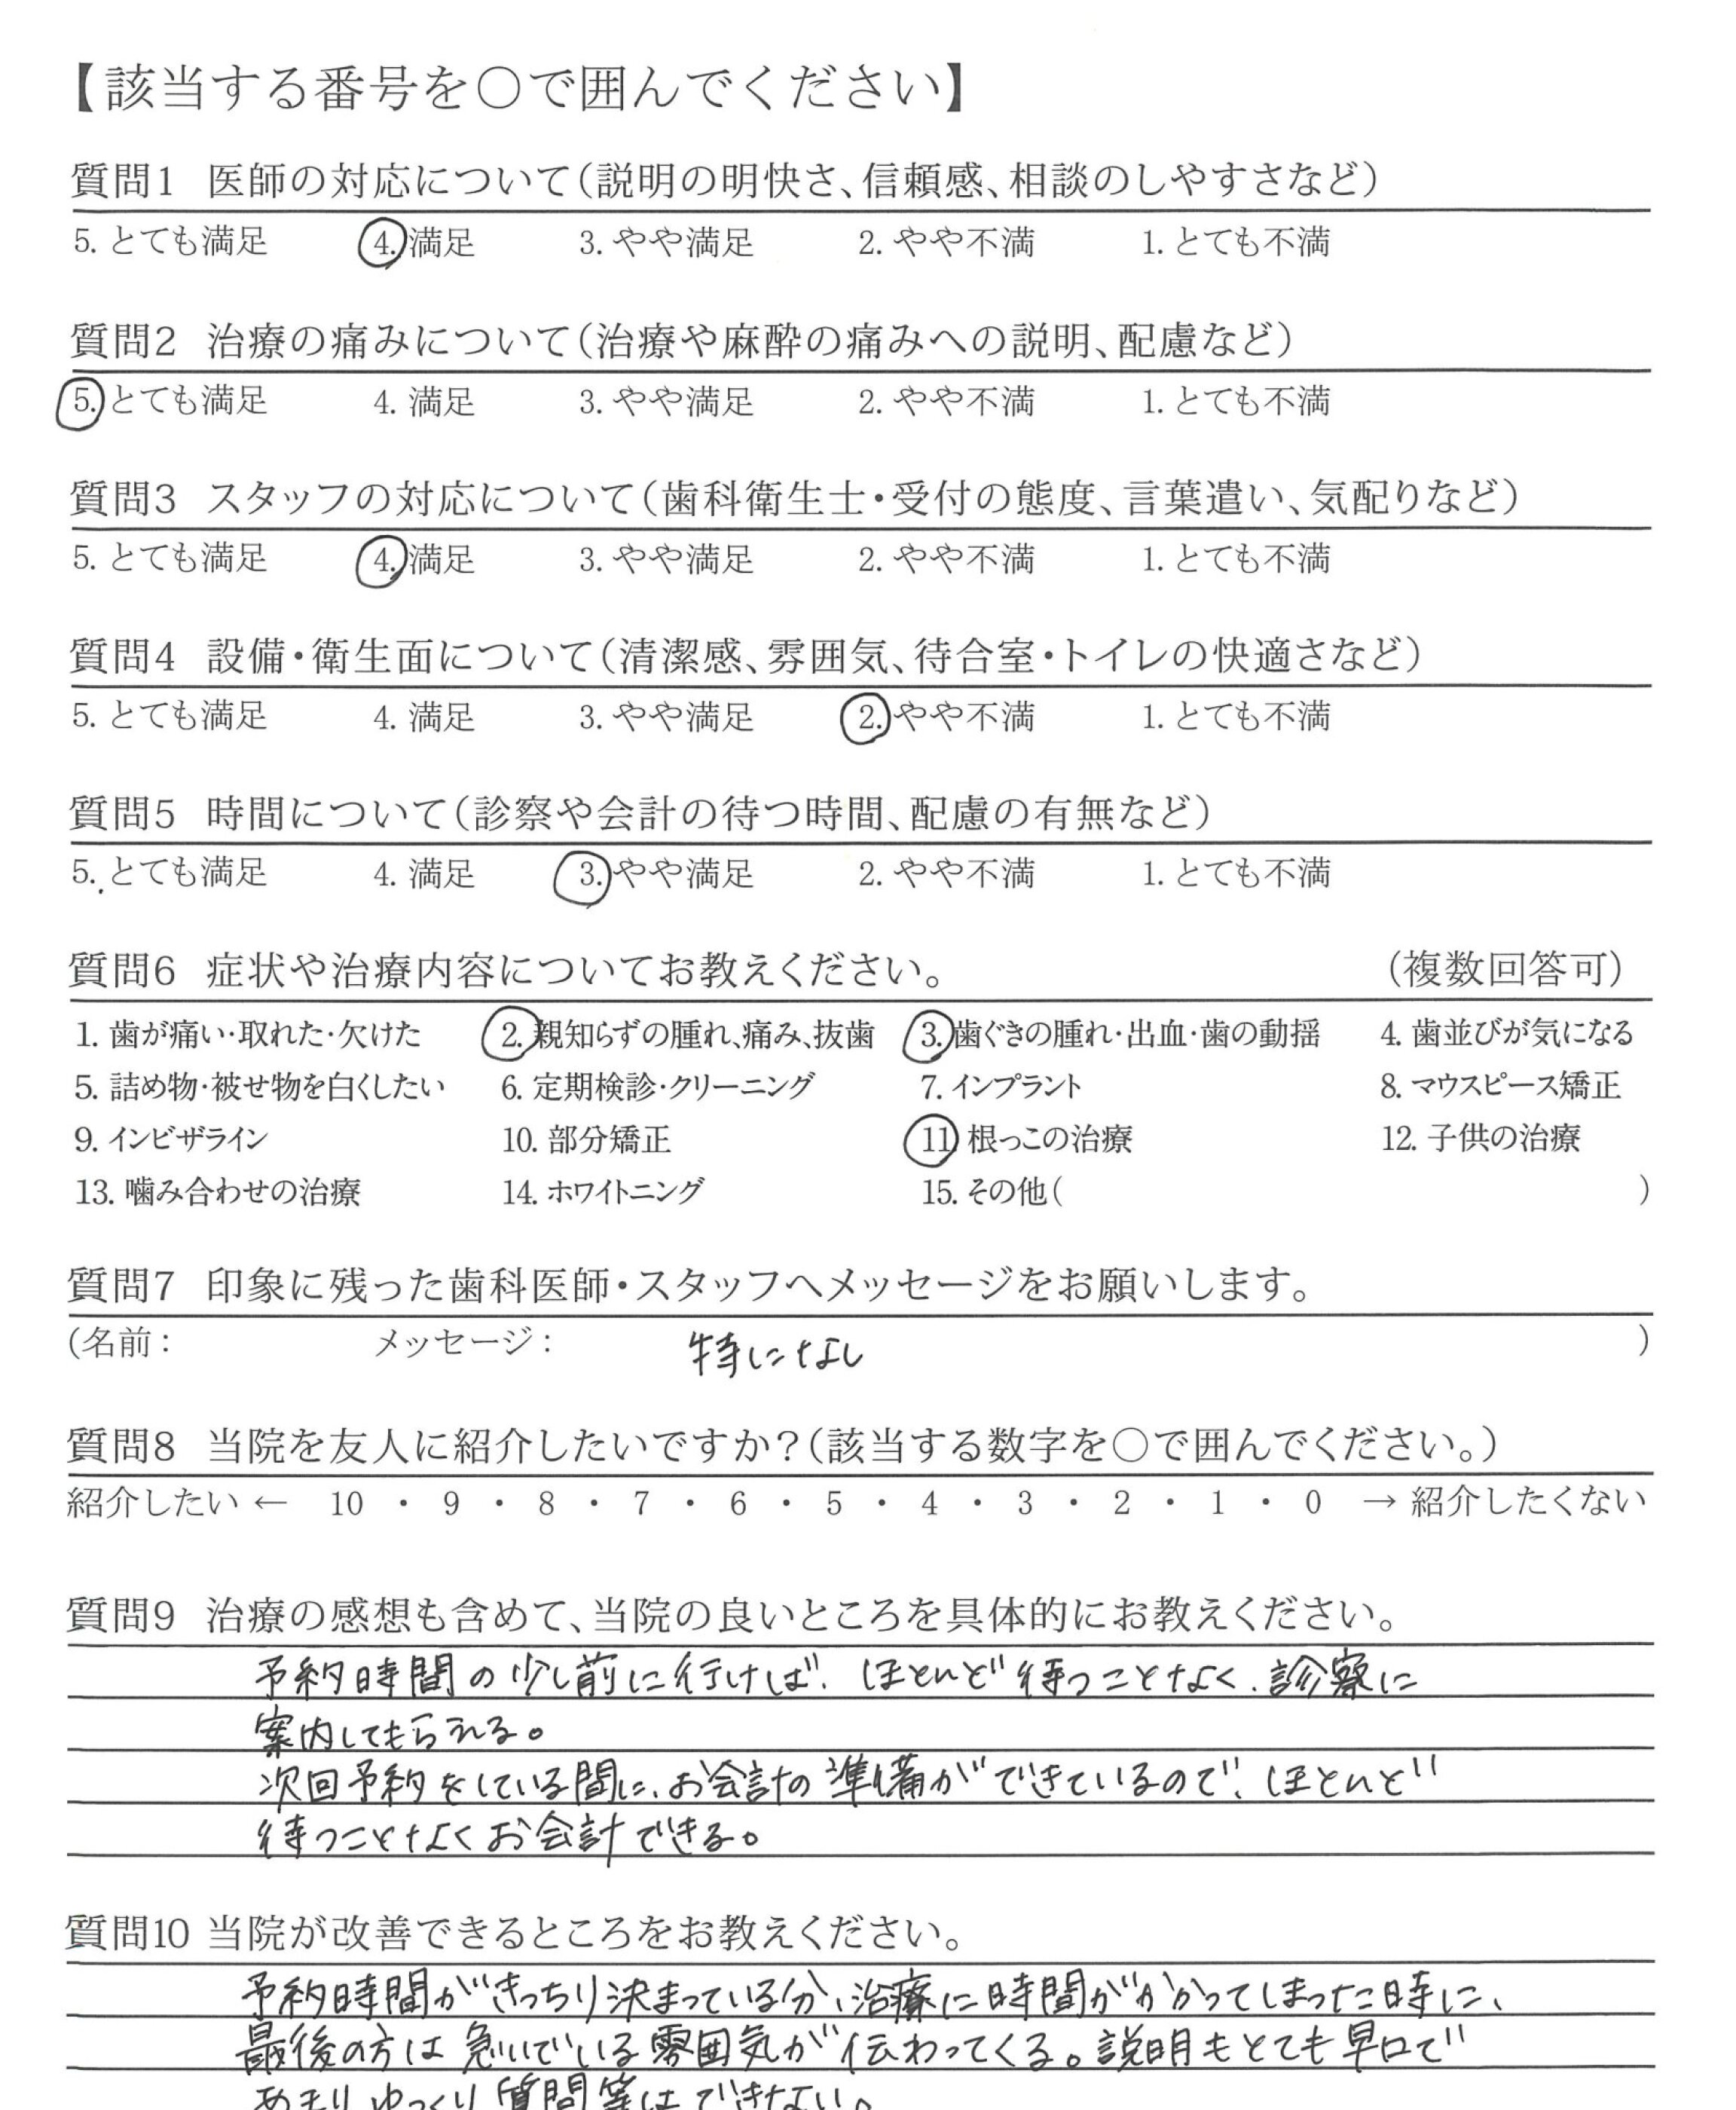 【該当する番号を○で囲んでください】
質問1 医師の対応について(説明の明快さ、信頼感、相談のしやすさなど)
5. とても満足 4. 満足 3. やや満足 2. やや不満 1. とても不満
質問2 治療の痛みについて(治療や麻酔の痛みへの説明、配慮など)
5. とても満足 4. 満足 3. やや満足 2. やや不満 1. とても不満
質問3 スタッフの対応について(歯科衛生士・受付の態度、言葉遣い、気配りなど)
5. とても満足 4. 満足 3. やや満足 2. やや不満 1. とても不満
質問4 設備・衛生面について(清潔感、雰囲気、待合室・トイレの快適さなど)
5. とても満足 4. 満足 3. やや満足 2. やや不満 1. とても不満
質問5 時間について(診察や会計の待つ時間、配慮の有無など)
5. とても満足 4. 満足 3. やや満足 2. やや不満 1. とても不満
質問6 症状や治療内容についてお教えください。 (複数回答可)
1. 歯が痛い・取れた・欠けた 2. 親知らずの腫れ、痛み、抜歯 3. 歯ぐきの腫れ・出血・歯の動揺 4. 歯並びが気になる
5. 詰め物・被せ物を白くしたい 6. 定期検診・クリーニング 7. インプラント 8. マウスピース矯正
9. インビザライン 10. 部分矯正 11. 根っこの治療 12. 子供の治療
13. 噛み合わせの治療 14. ホワイトニング 15. その他( )
質問7 印象に残った歯科医師・スタッフへメッセージをお願いします。
(名前: メッセージ: 特になし )
質問8 当院を友人に紹介したいですか?(該当する数字を○で囲んでください。)
紹介したい ← 10 ・ 9 ・ 8 ・ 7 ・ 6 ・ 5 ・ 4 ・ 3 ・ 2 ・ 1 ・ 0 → 紹介したくない
質問9 治療の感想も含めて、当院の良いところを具体的にお教えください。
予約時間の少し前に行けば、ほとんど待つことなく、診察に
案内してもらえる。
次回予約をしている間に、お会計の準備ができているので、ほとんど
待つことなくお会計できる。
質問10 当院が改善できるところをお教えください。
予約時間がきっちり決まっている分、治療に時間がかかってしまった時に、
最後の方は急いでいる雰囲気が伝わってくる。説明もとても早口で
あまりゆっくり質問等はできない。